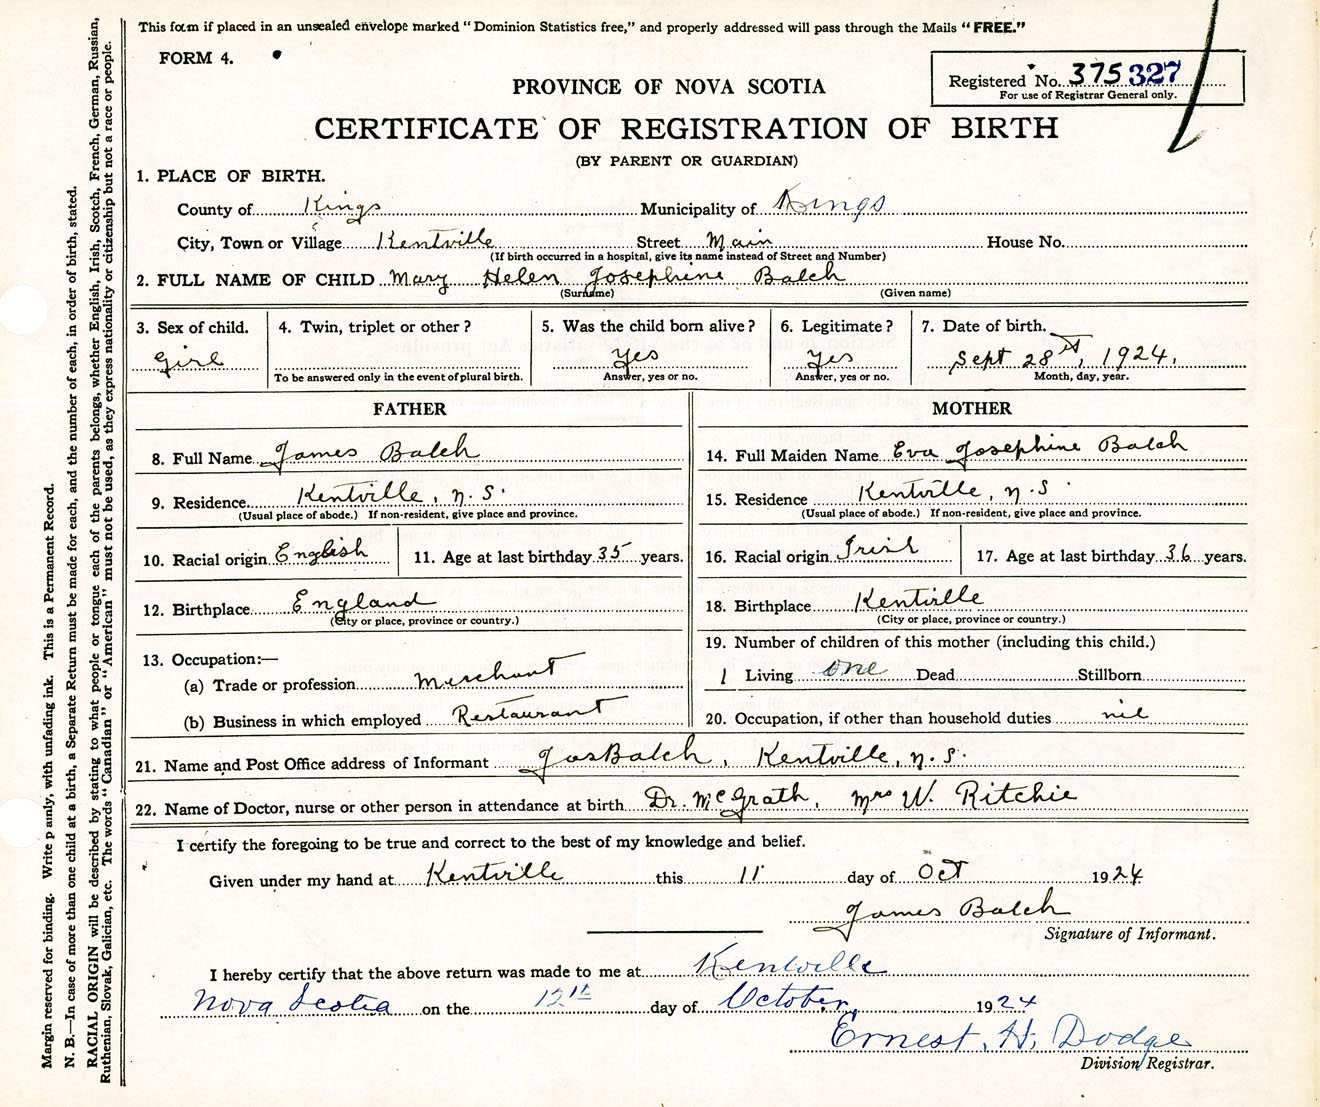 This form if placed in an unsealed envelope marked "Dominion Statistics free," and properly addressed will pass through the Mails "FREE."
FORM 4.
Registered No. 375 327
For use of Registrar General only.
PROVINCE OF NOVA SCOTIA
CERTIFICATE OF REGISTRATION OF BIRTH
(BY PARENT OR GUARDIAN)
1. PLACE OF BIRTH.
County of Kings Municipality of Kings
City, Town or Village Kentville Street Main House No.
(If birth occurred in a hospital, give its name instead of Street and Number)
2. FULL NAME OF CHILD Mary Helen Josephine Balch
(Surname) (Given name)
3. Sex of child. 4. Twin, triplet or other? 5. Was the child born alive? 6. Legitimate? 7. Date of birth.
Girl Yes Yes Sept 28th, 1924.
To be answered only in the event of plural birth. Answer, yes or no. Answer, yes or no. Month, day, year.
FATHER MOTHER
8. Full Name James Balch 14. Full Maiden Name Eva Josephine Balch
9. Residence Kentville, N.S. 15. Residence Kentville, N.S.
(Usual place of abode.) If non-resident, give place and province. (Usual place of abode.) If non-resident, give place and province.
10. Racial origin English 11. Age at last birthday 35 years. 16. Racial origin Irish 17. Age at last birthday 36 years.
12. Birthplace England 18. Birthplace Kentville
(City or place, province or country.) (City or place, province or country.)
19. Number of children of this mother (including this child.)
13. Occupation:—
(a) Trade or profession Merchant 1 Living one Dead Stillborn
(b) Business in which employed Restaurant 20. Occupation, if other than household duties nil
21. Name and Post Office address of Informant Jas Balch, Kentville, N.S.
22. Name of Doctor, nurse or other person in attendance at birth Dr. McGrath, Mrs W. Ritchie
I certify the foregoing to be true and correct to the best of my knowledge and belief.
Given under my hand at Kentville this 11 day of Oct 1924
James Balch
Signature of Informant.
I hereby certify that the above return was made to me at Kentville
Nova Scotia on the 12th day of October, 1924
Ernest. H. Dodge
Division Registrar.
Margin reserved for binding. Write plainly, with unfading ink. This is a Permanent Record.
N. B.—In case of more than one child at a birth, a Separate Return must be made for each, and the number of each, in order of birth, stated.
RACIAL ORIGIN will be described by stating to what people or tongue each of the parents belongs, whether English, Irish, Scotch, French, German, Russian,
Ruthenian, Slovak, Galician, etc. The words "Canadian" or "American" must not be used, as they express nationality or citizenship but not a race or people.